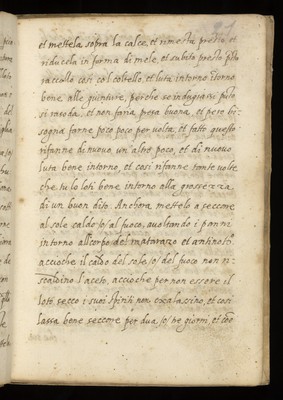 et mettela sopra la calce, et rimesta presto, et
riducela in forma di mele, et subito presto
raccullo così col coltello, et luta intorno
bene alle giunture, perche se indugiassi
si rasoda, et non faria presa buona, et però bi-
sogna farne poco poco per volta, et fatto questo
rifanne di nuovo un altro poco, et di nuovo
luta bene intorno, et cosi rifanne tante volte
che tu lo loti bene intorno alla grossezza
di un buon dito. Anchora mettelo a seccare
al sole caldo o al fuoco, avoltando i panni
intorno all corpo del matarazo et antinoti
accioche il caldo del sole o del fuoco non ri-
scaldino l'aceto, accioche per non essere il
loto secco i suoi spiriti non exalassino, et cosi
lassa bene seccare per dua o tre giorni, et